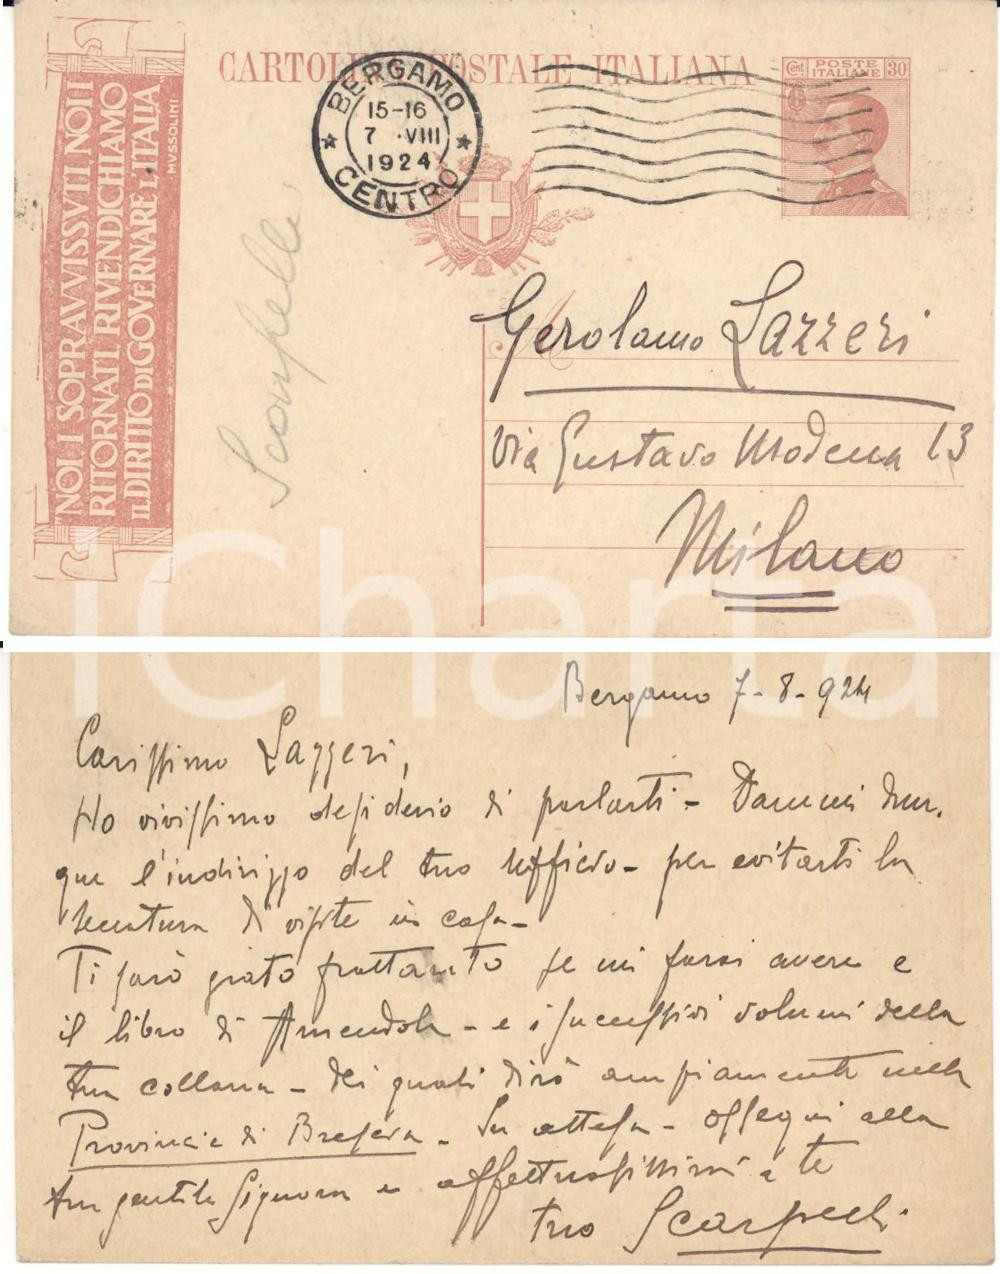 CARTOLINA POSTALE ITALIANA
"NOI I SOPRAVVISSVTI, NOI
RITORNATI, RIVENDICHIAMO
IL DIRITTO DI GOVERNARE L'ITALIA"
MVSSOLINI
BERGAMO
15-16
7 · VIII
1924
CENTRO
Cent
POSTE
ITALIANE
30
Gerolamo Lazzeri
Via Gustavo Modena 13
Milano
iCharta
Bergamo 7-8-924
Carissimo Lazzeri,
Ho vivissimo desiderio di parlarti - Dammi dun.
que l'indirizzo del tuo ufficio - per evitarti la
seccatura di visite in casa -
Ti sarò grato frattanto se mi farai avere e
il libro di Amendola - e i successivi volumi della
tua collana - dei quali dirò ampiamente nella
Provincia di Brescia - In attesa - ossequi alla
tua gentile Signora e affettuosissimi a te
tuo Scarpelli